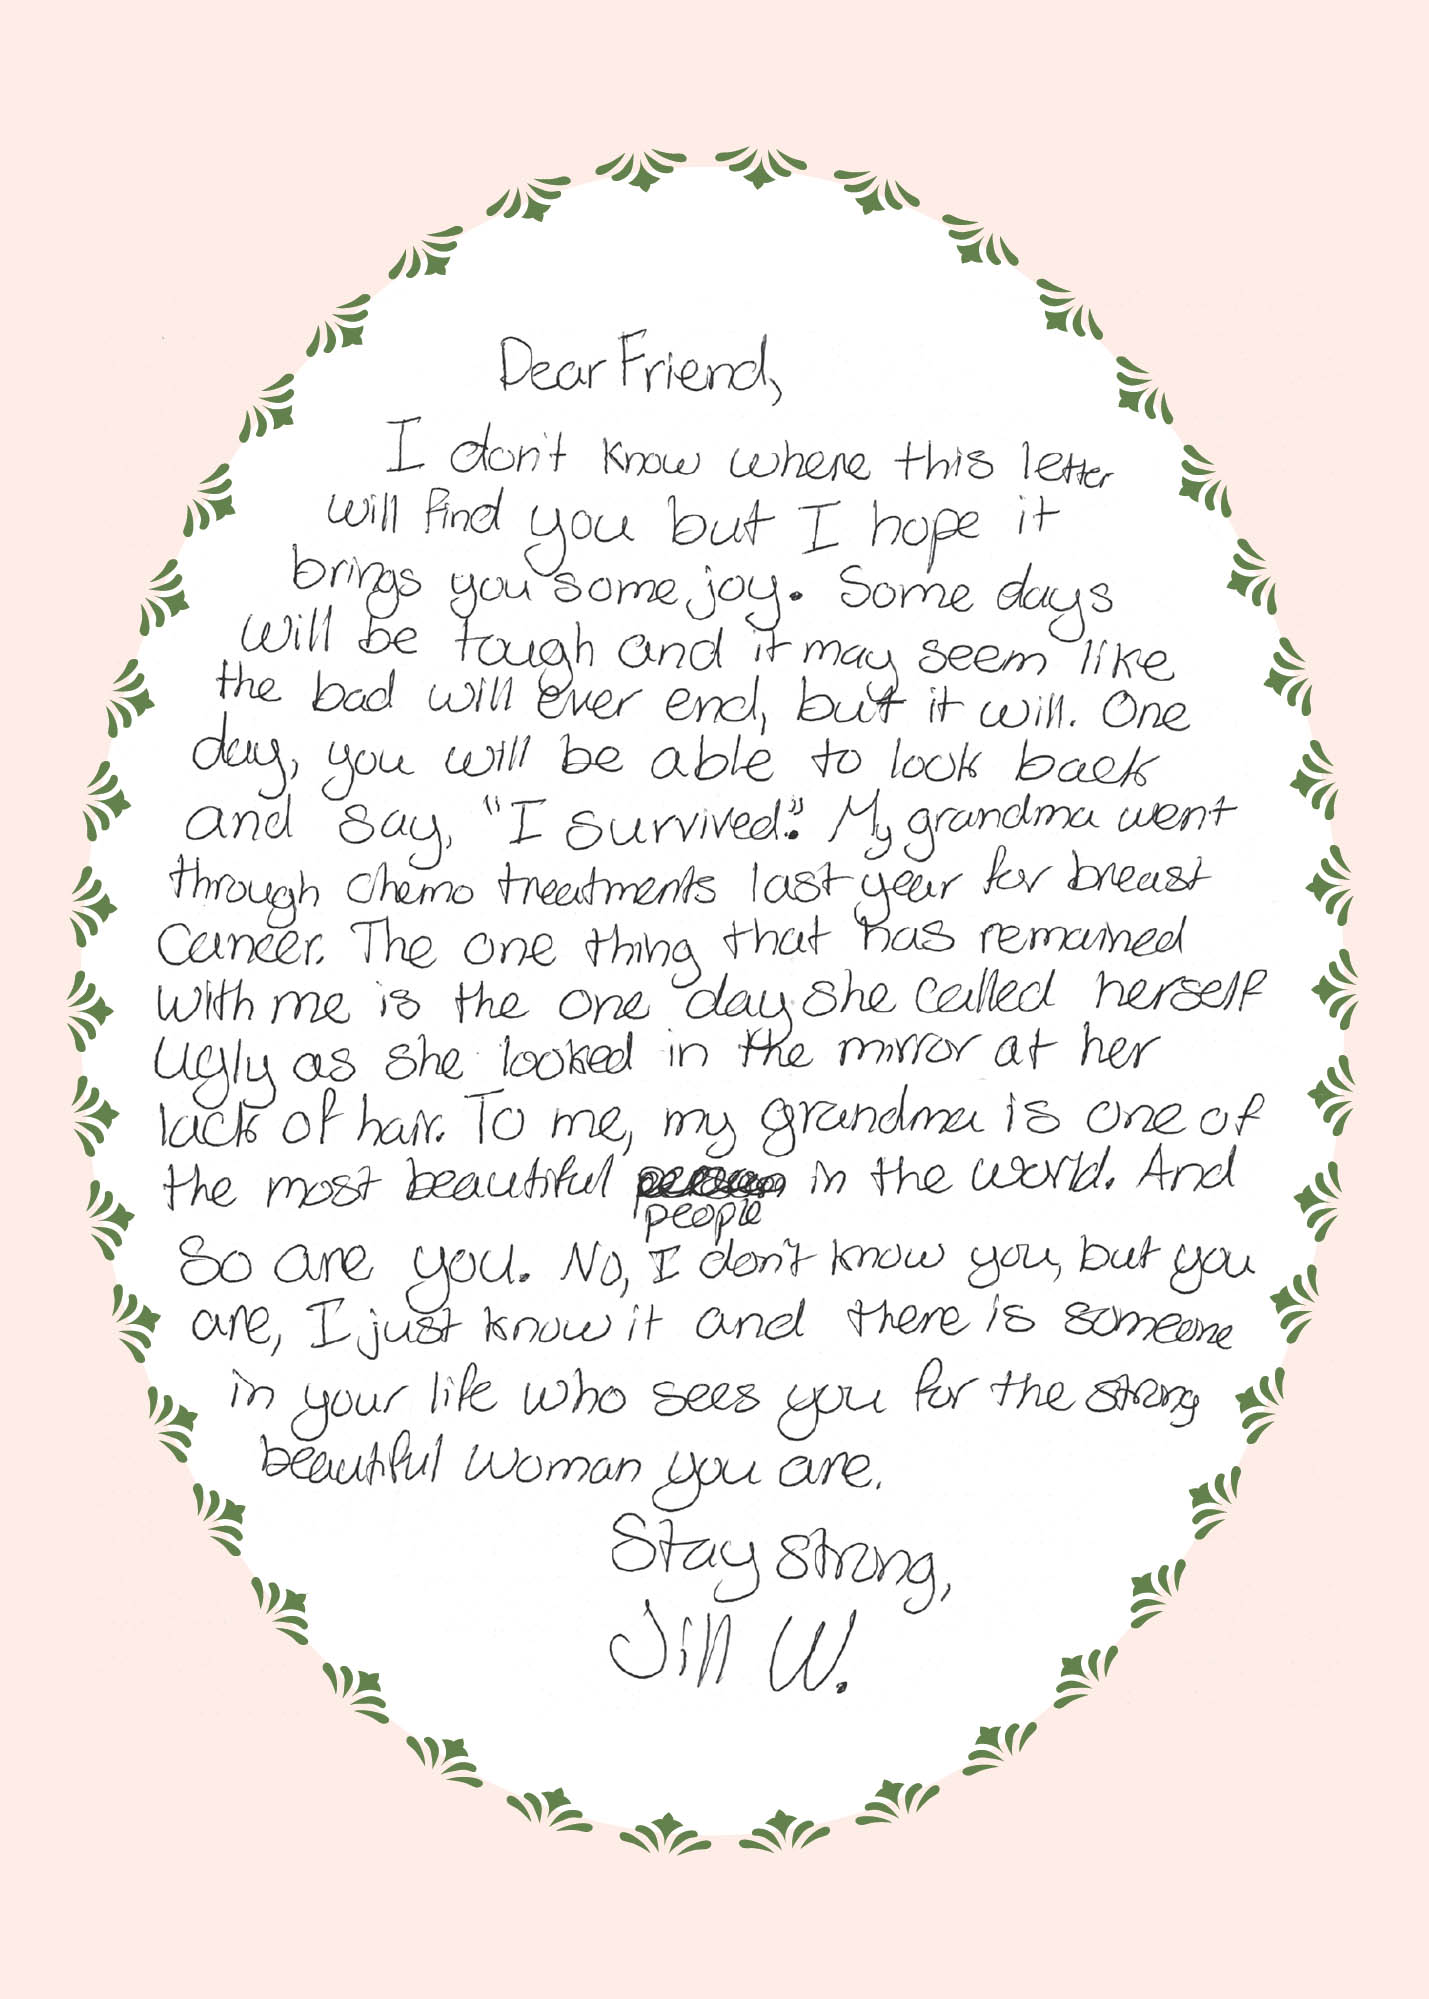 Dear Friend,
I don't know where this letter
will find you but I hope it
brings you some joy. Some days
will be tough and it may seem like
the bad will ever end, but it will. One
day, you will be able to look back
and say, "I survived". My grandma went
through chemo treatments last year for breast
cancer. The one thing that has remained
with me is the one day she called herself
ugly as she looked in the mirror at her
lack of hair. To me, my grandma is one of
the most beautiful in the world. And
people
So are you. No, I don't know you, but you
are, I just know it and there is someone
in your life who sees you for the strong
beautiful woman you are.
Stay strong,
Jill W.